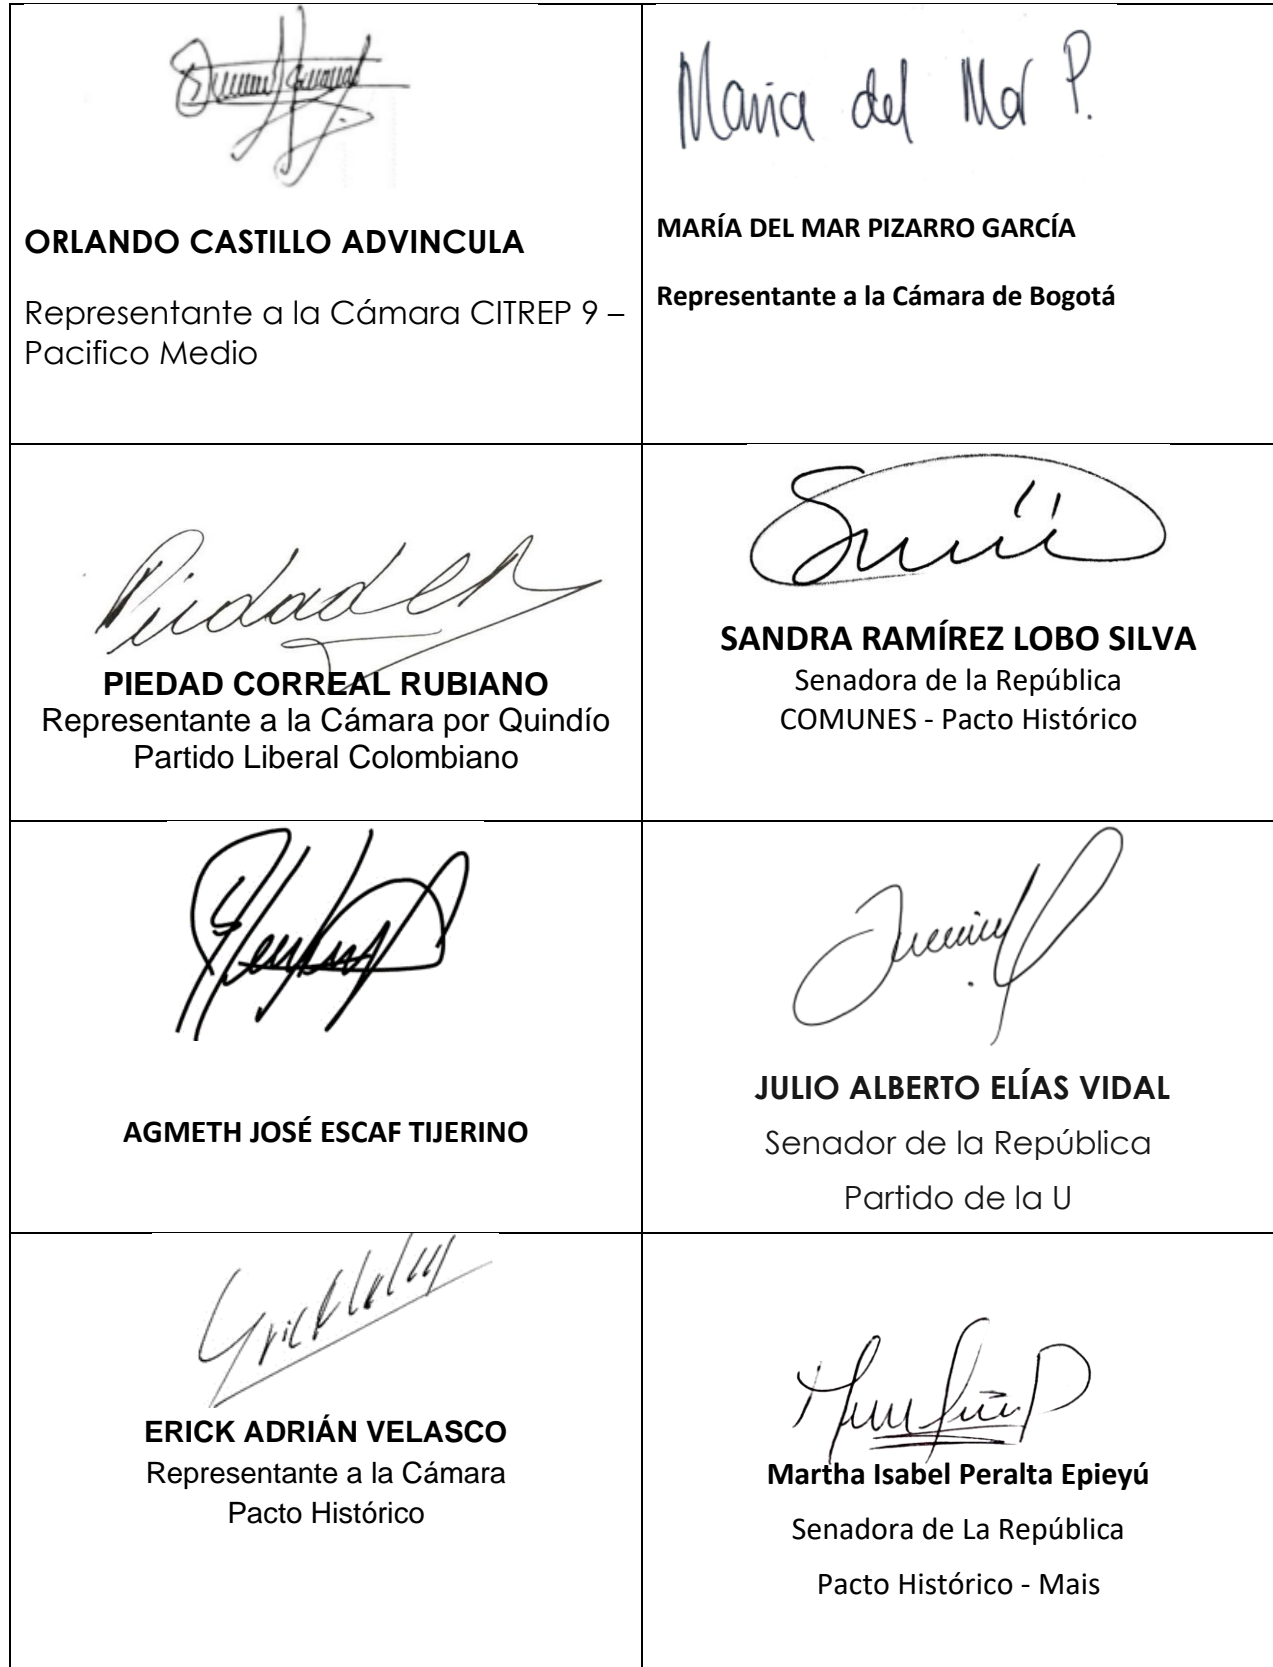 Maria del Mar P.
ORLANDO CASTILLO ADVINCULA
Representante a la Cámara CITREP 9 –
Pacifico Medio
MARÍA DEL MAR PIZARRO GARCÍA
Representante a la Cámara de Bogotá
Piedad
PIEDAD CORREAL RUBIANO
Representante a la Cámara por Quindío
Partido Liberal Colombiano
SANDRA RAMÍREZ LOBO SILVA
Senadora de la República
COMUNES - Pacto Histórico
AGMETH JOSÉ ESCAF TIJERINO
JULIO ALBERTO ELÍAS VIDAL
Senador de la República
Partido de la U
ERICK ADRIÁN VELASCO
Representante a la Cámara
Pacto Histórico
Martha Isabel Peralta Epieyú
Senadora de La República
Pacto Histórico - Mais